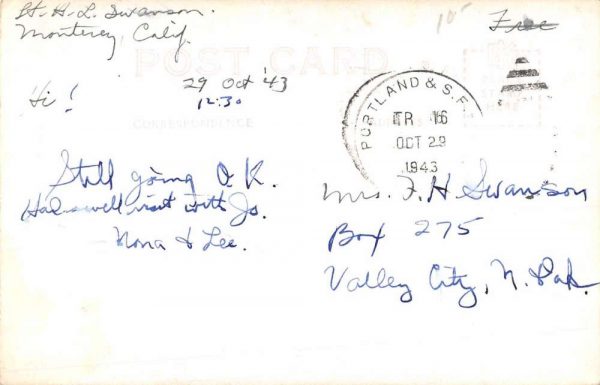 Lt. H. L. Swanson.
Monterey, Calif.
10¢
Free
POST CARD
29 Oct '43
12:30
Hi!
CORRESPONDENCE
PORTLAND & S.F.
TR 16
OCT 29
1943
Still going O.K.
Had swell visit with Jo.
Nona & Lee.
Mrs. F. H. Swanson
Box 275
Valley City, N. Dak.